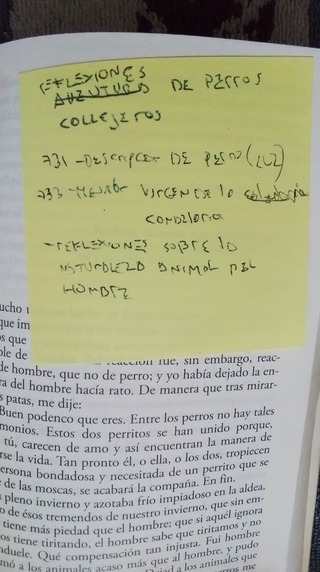 REFLEXIONES
DE PERROS
COLLEJEROS
731 - DESCRIPCION DE PERRO (LUZ)
733 -
VIRGEN DE lo
CONDELORIO
- REFLEXIONES SOBRE LO
NATURALEZO ANIMAL DEL
HOMBRE
ucho
que im
os que
ble de reacción fue, sin embargo, reac-
de hombre, que no de perro; y yo había dejado la en-
ra del hombre hacía rato. De manera que tras mirar-
s patas, me dije:
Buen podenco que eres. Entre los perros no hay tales
monios. Estos dos perritos se han unido porque,
tú, carecen de amo y así encuentran la manera de
rse la vida. Tan pronto él, o ella, o los dos, tropiecen
ersona bondadosa y necesitada de un perrito que se
de las moscas, se acabará la compaña. En fin.
pleno invierno y azotaba frío impiadoso en la aldea.
o de ésos tremendos de nuestro invierno, que sin em-
tiene más piedad que el hombre; que si aquél ignora
os tiene tiritando, el hombre sabe que tiritamos y no
nduele. Qué compensación tan injusta. Fui hombre
mó a los animales acaso más que al hombre, y pudo
a los animales que